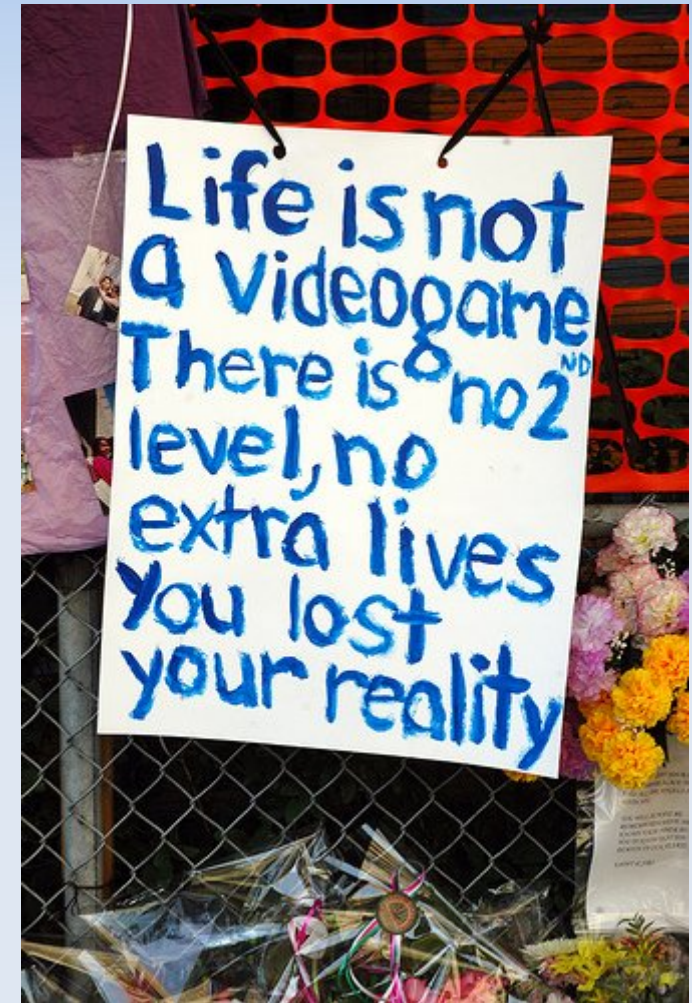 Life is not
a videogame
There is no 2ND
level, no
extra lives
you lost
your reality